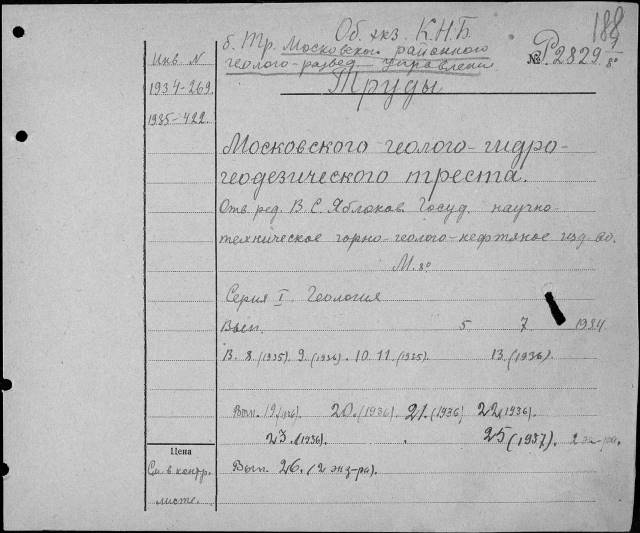 Об. экз. К.Н.Б.
188
б. Тр. Московского районного
геолого-развед. управления
№ Р.2829 1/8°
Труды
Инв. N
1934-269.
1935-422.
Московского геолого-гидро-
геодезического треста.
Отв. ред. В. С. Яблоков. Госуд. научно-
техническое горно-геолого-нефтяное изд-во.
М. 8°
Серия I. Геология
Вып. 5 7 1934
В. 8. (1935). 9. (1936). 10. 11. (1935). 13. (1936).
Вып. 19 (1936). 20. (1936). 21. (1936) 22 (1936).
23. (1936). 25 (1937). 2 экз-ра.
Вып. 26. (2 экз-ра).
Цена
См. в контр.
листе.